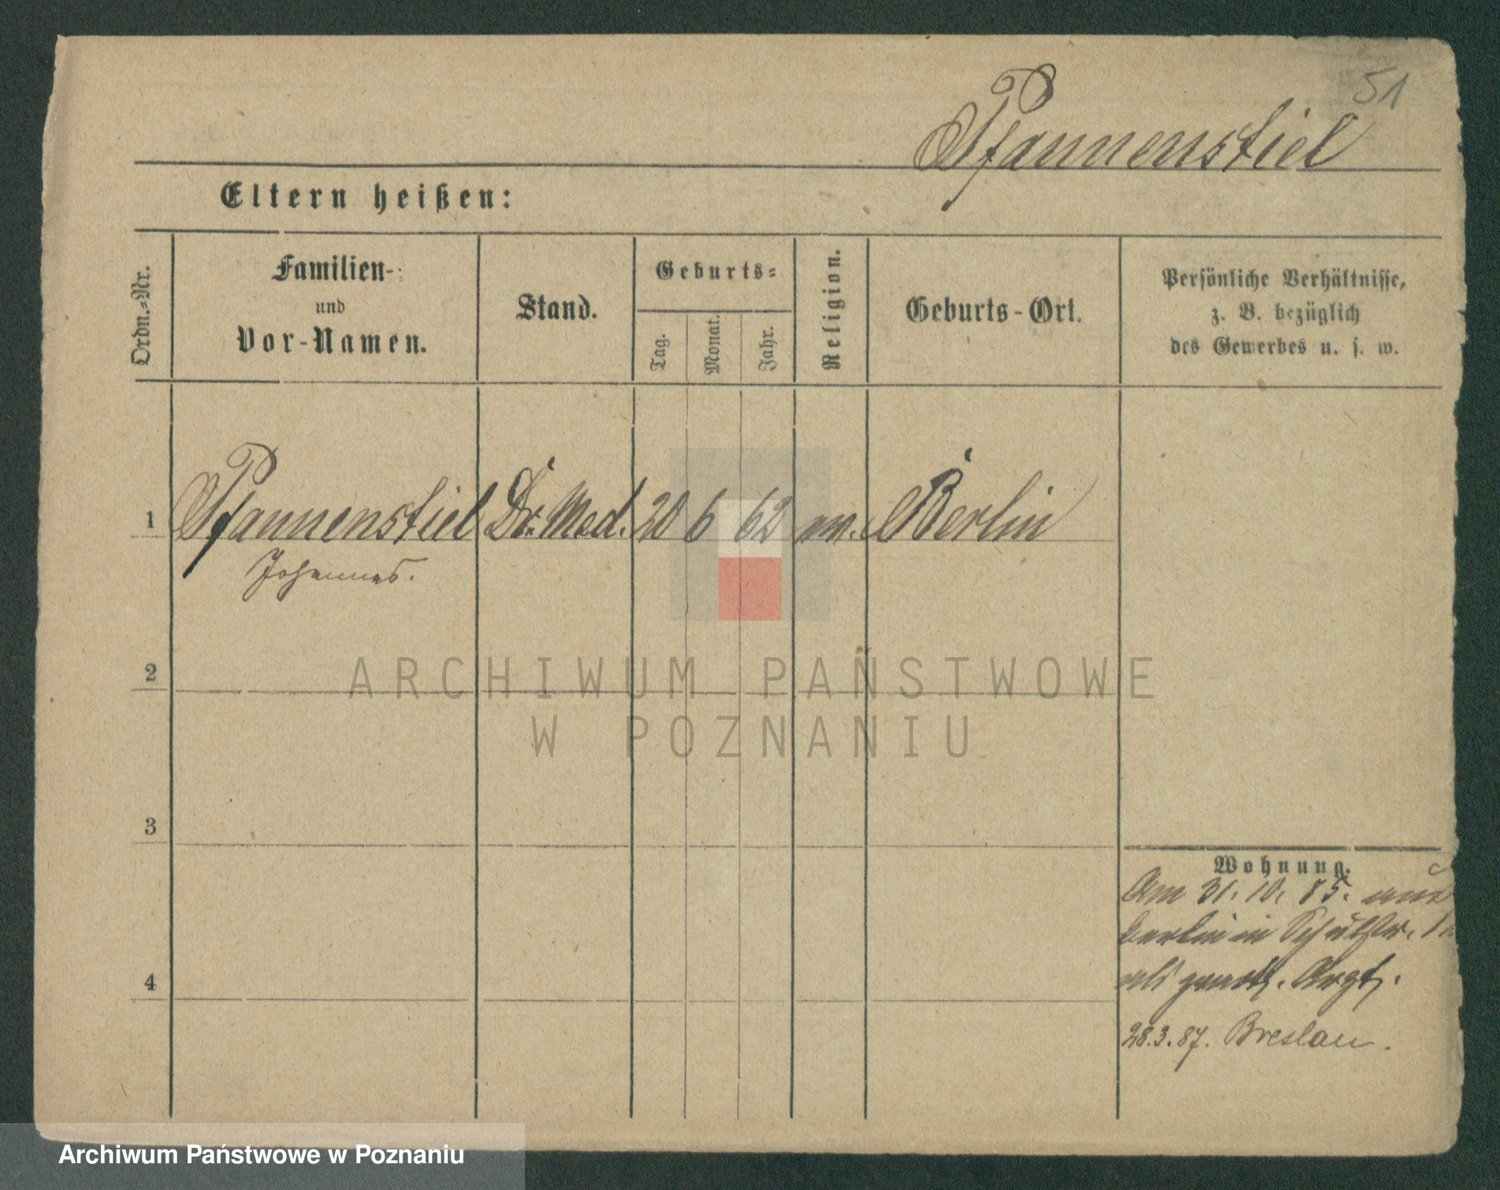 51
Pfannenstiel
Eltern heißen:
Ordn.=Nr.
Familien-
und
Vor-Namen.
Stand.
Geburts=
Tag.
Monat.
Jahr.
Religion.
Geburts-Ort.
Persönliche Verhältnisse,
z. B. bezüglich
des Gewerbes u. s. w.
1 Pfannenstiel Dr. Med. 20 6 62 ev. Berlin
Johannes.
2
3
4
Wohnung.
Am 31. 10. 85. aus
Berlin in Schulstr.
als prakt. Arzt.
28.3.87. Breslau.
ARCHIWUM PAŃSTWOWE
W POZNANIU
Archiwum Państwowe w Poznaniu